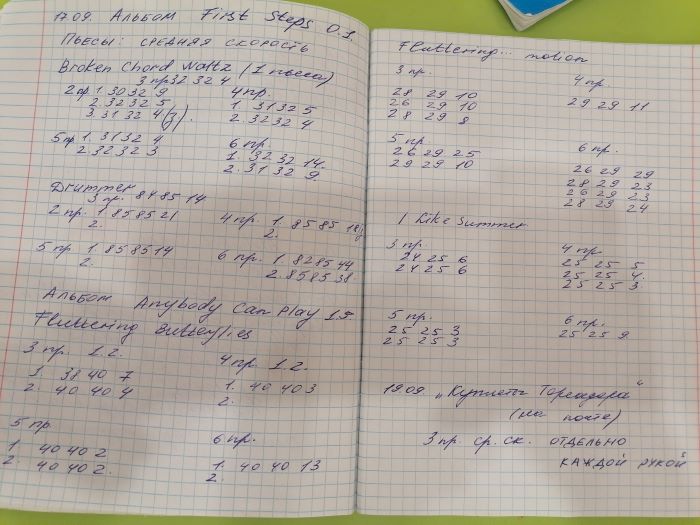 17.09. Альбом First Steps 0.1.
Пьесы: средняя скорость
Broken Chord Waltz (1 пьеса)
3 пр 32 32 4
2 пр. 1. 30 32 9
2. 32 32 5
3. 31 32 4 (3).
4 пр.
1. 31 32 5
2. 32 32 4
5 пр 1. 31 32 4
2. 32 32 3
6 пр.
1. 32 32 14.
2. 31 32 9
Drummer
3 пр. 84 85 14
2 пр. 1. 85 85 21
2.
4 пр. 1. 85 85 18
2.
5 пр. 1. 85 85 14
2.
6 пр. 1. 82 85 44
2. 85 85 38
Альбом Anybody Can Play 1.5
Fluttering Butterflies
3 пр. 1.2.
1. 38 40 7
2. 40 40 4
4 пр. 1.2.
1. 40 40 3
2.
5 пр.
1. 40 40 2
2. 40 40 2.
6 пр.
1. 40 40 13
2.
Fluttering... motion
3 пр.
28 29 10
26 29 10
28 29 8
4 пр.
29 29 11
5 пр.
26 29 25
29 29 10
6 пр.
26 29 29
28 29 23
26 29 23
28 29 24
I Like Summer
3 пр.
24 25 6
24 25 6
4 пр
25 25 5
25 25 4.
25 25 3
5 пр.
25 25 3
25 25 3
6 пр.
25 25 9.
19.09. „Куплеты Тореадора"
(на посте)
3 пр. ср. ск. отдельно
каждой рукой